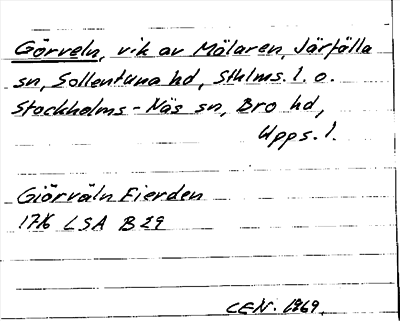 Görveln, vik av Mälaren, Järfälla
sn, Sollentuna hd, Sthlms. l. o.
Stockholms-Näs sn, Bro hd,
Upps. l.
Giörväln Fierden
1716 LSA B 29
C.E.N. 1969.